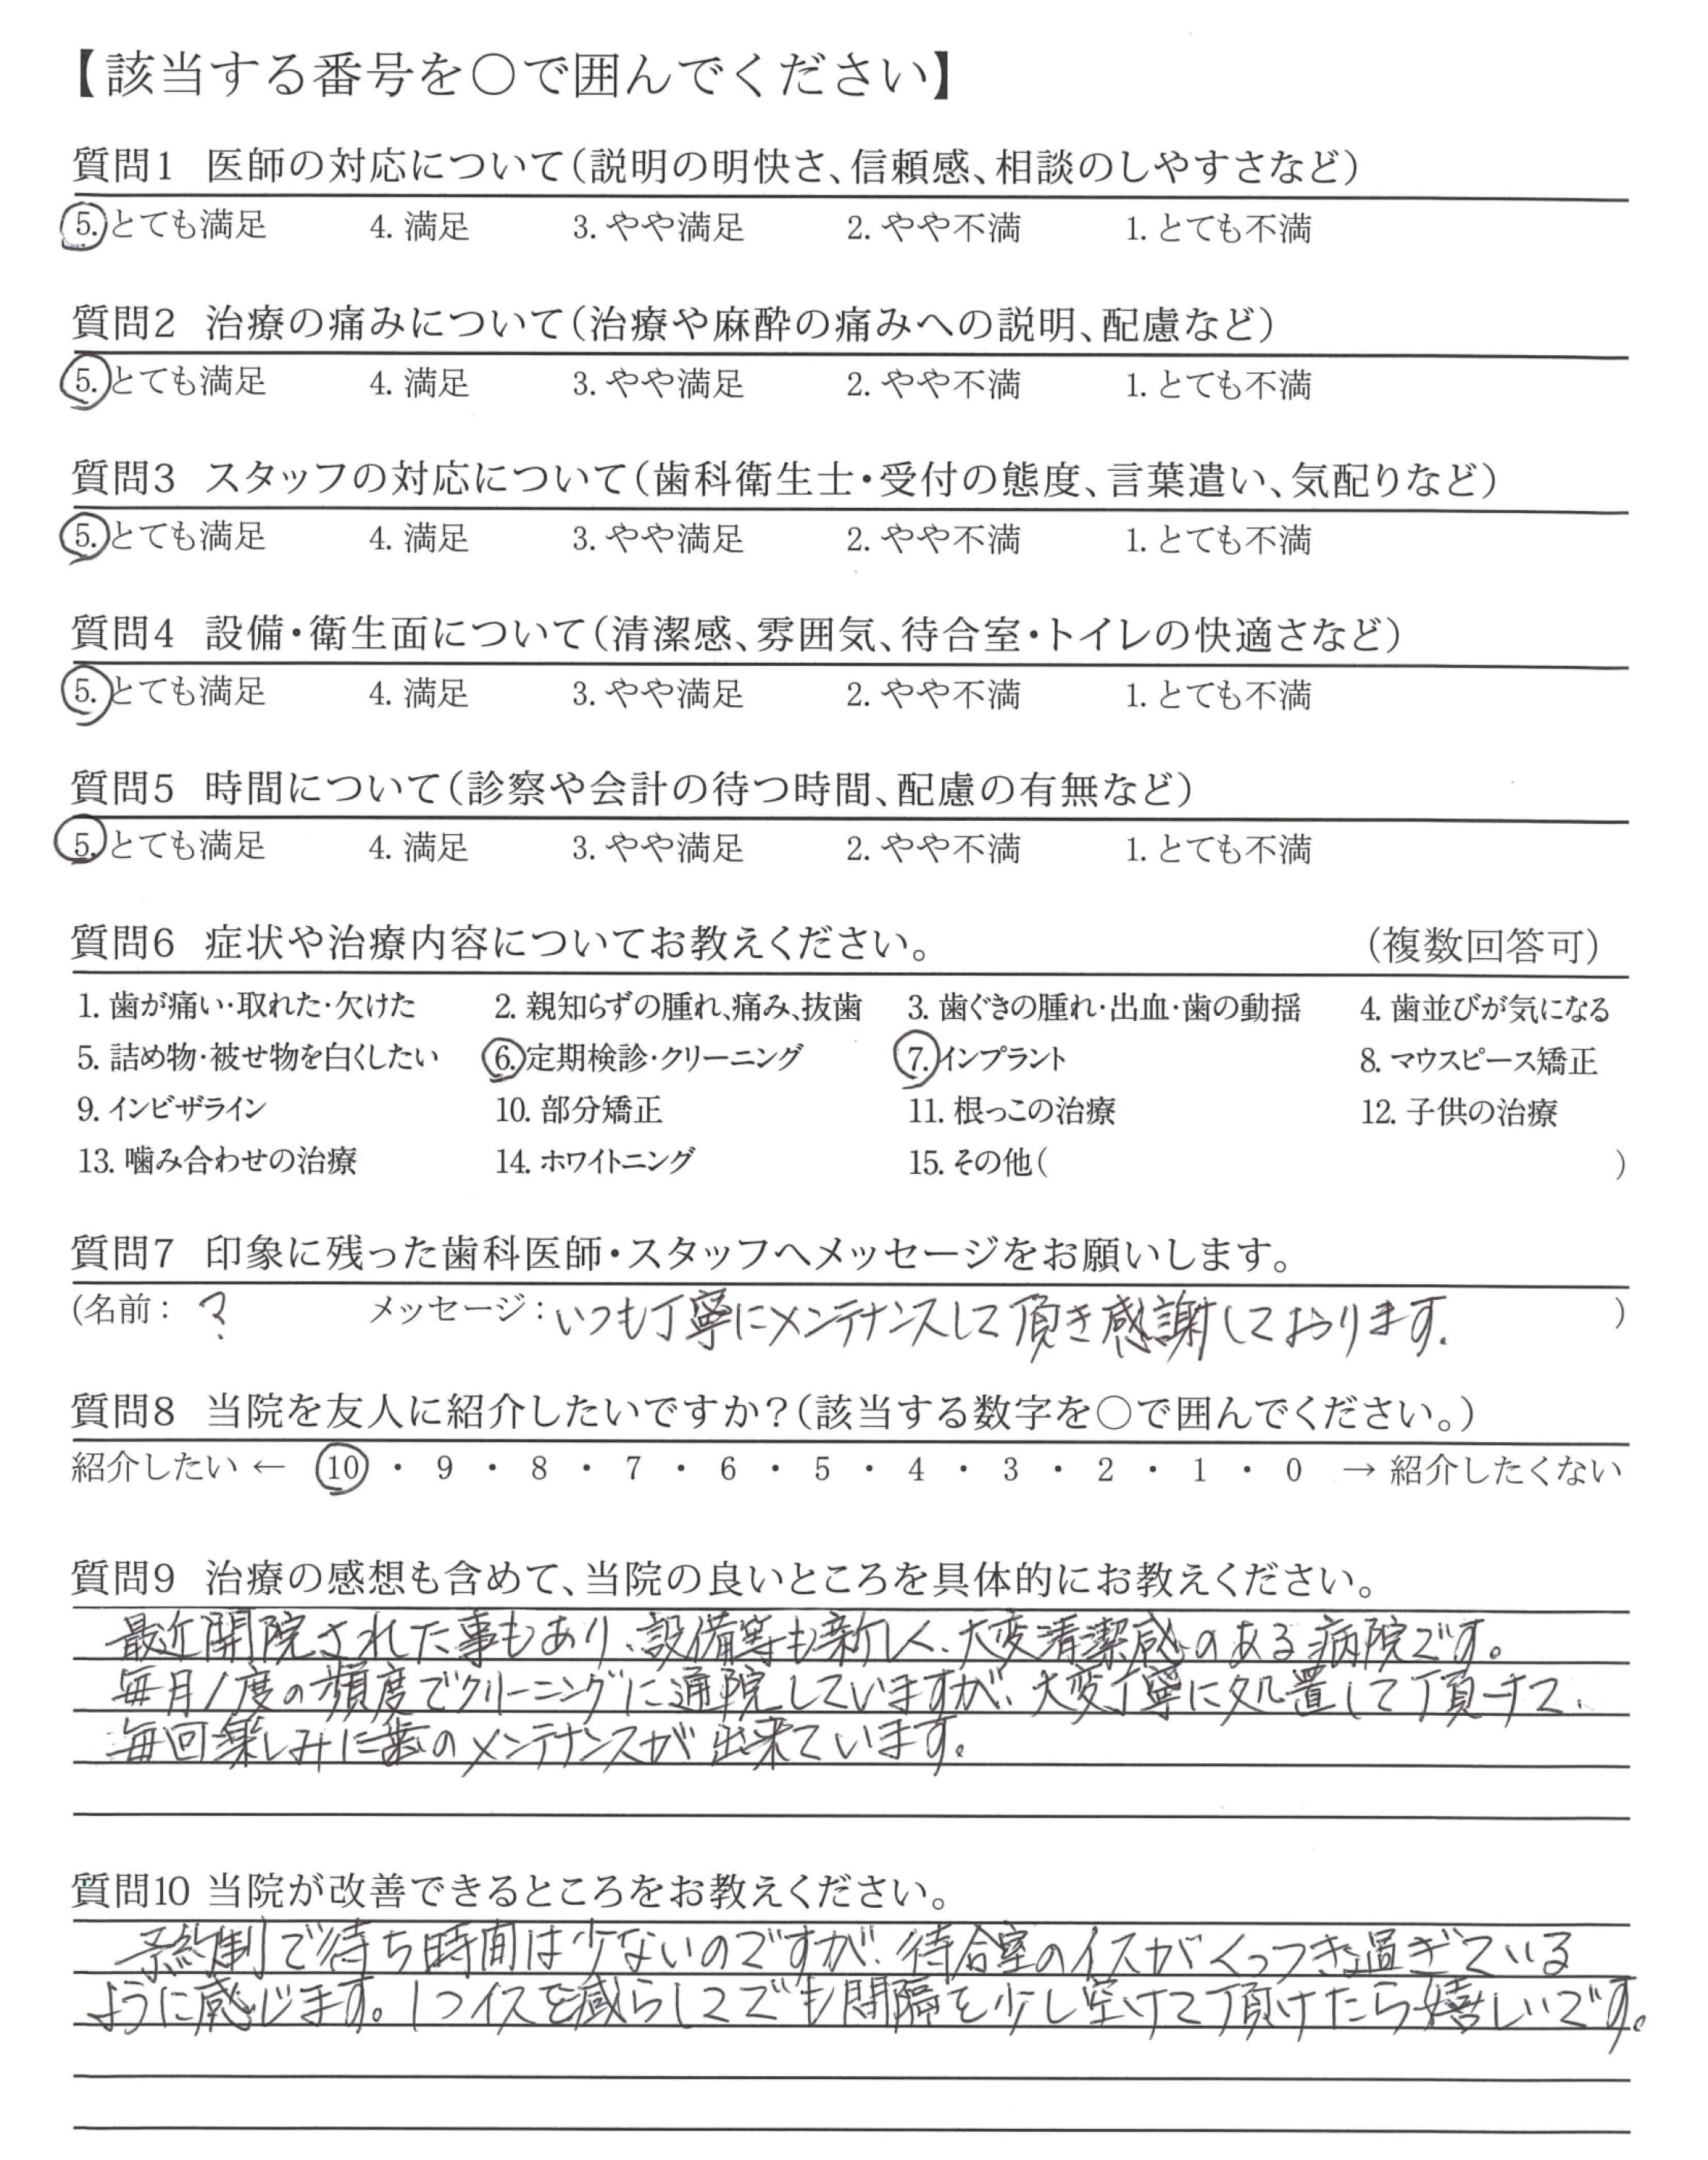 【該当する番号を○で囲んでください】
質問1 医師の対応について(説明の明快さ、信頼感、相談のしやすさなど)
5. とても満足 4. 満足 3. やや満足 2. やや不満 1. とても不満
質問2 治療の痛みについて(治療や麻酔の痛みへの説明、配慮など)
5. とても満足 4. 満足 3. やや満足 2. やや不満 1. とても不満
質問3 スタッフの対応について(歯科衛生士・受付の態度、言葉遣い、気配りなど)
5. とても満足 4. 満足 3. やや満足 2. やや不満 1. とても不満
質問4 設備・衛生面について(清潔感、雰囲気、待合室・トイレの快適さなど)
5. とても満足 4. 満足 3. やや満足 2. やや不満 1. とても不満
質問5 時間について(診察や会計の待つ時間、配慮の有無など)
5. とても満足 4. 満足 3. やや満足 2. やや不満 1. とても不満
質問6 症状や治療内容についてお教えください。 (複数回答可)
1. 歯が痛い・取れた・欠けた 2. 親知らずの腫れ、痛み、抜歯 3. 歯ぐきの腫れ・出血・歯の動揺 4. 歯並びが気になる
5. 詰め物・被せ物を白くしたい 6. 定期検診・クリーニング 7. インプラント 8. マウスピース矯正
9. インビザライン 10. 部分矯正 11. 根っこの治療 12. 子供の治療
13. 噛み合わせの治療 14. ホワイトニング 15. その他( )
質問7 印象に残った歯科医師・スタッフへメッセージをお願いします。
(名前: ? メッセージ:いつも丁寧にメンテナンスして頂き感謝しております。 )
質問8 当院を友人に紹介したいですか?(該当する数字を○で囲んでください。)
紹介したい ← 10 ・ 9 ・ 8 ・ 7 ・ 6 ・ 5 ・ 4 ・ 3 ・ 2 ・ 1 ・ 0 → 紹介したくない
質問9 治療の感想も含めて、当院の良いところを具体的にお教えください。
最近開院された事もあり、設備等も新しく、大変清潔感のある病院です。
毎月1度の頻度でクリーニングに通院していますが、大変丁寧に処置して頂けて、
毎回楽しみに歯のメンテナンスが出来ています。
質問10 当院が改善できるところをお教えください。
予約制で待ち時間は少ないのですが、待合室のイスがくっつき過ぎている
ように感じます。1つイスを減らしてでも間隔を少し空けて頂けたら嬉しいです。